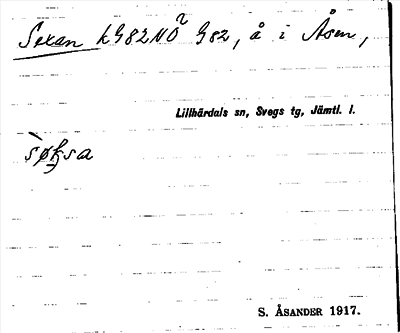 Sexan kG82NÖ² G82, å i Åsen,
Lillhärdals sn, Svegs tg, Jämtl. l.
S. ÅSANDER 1917.